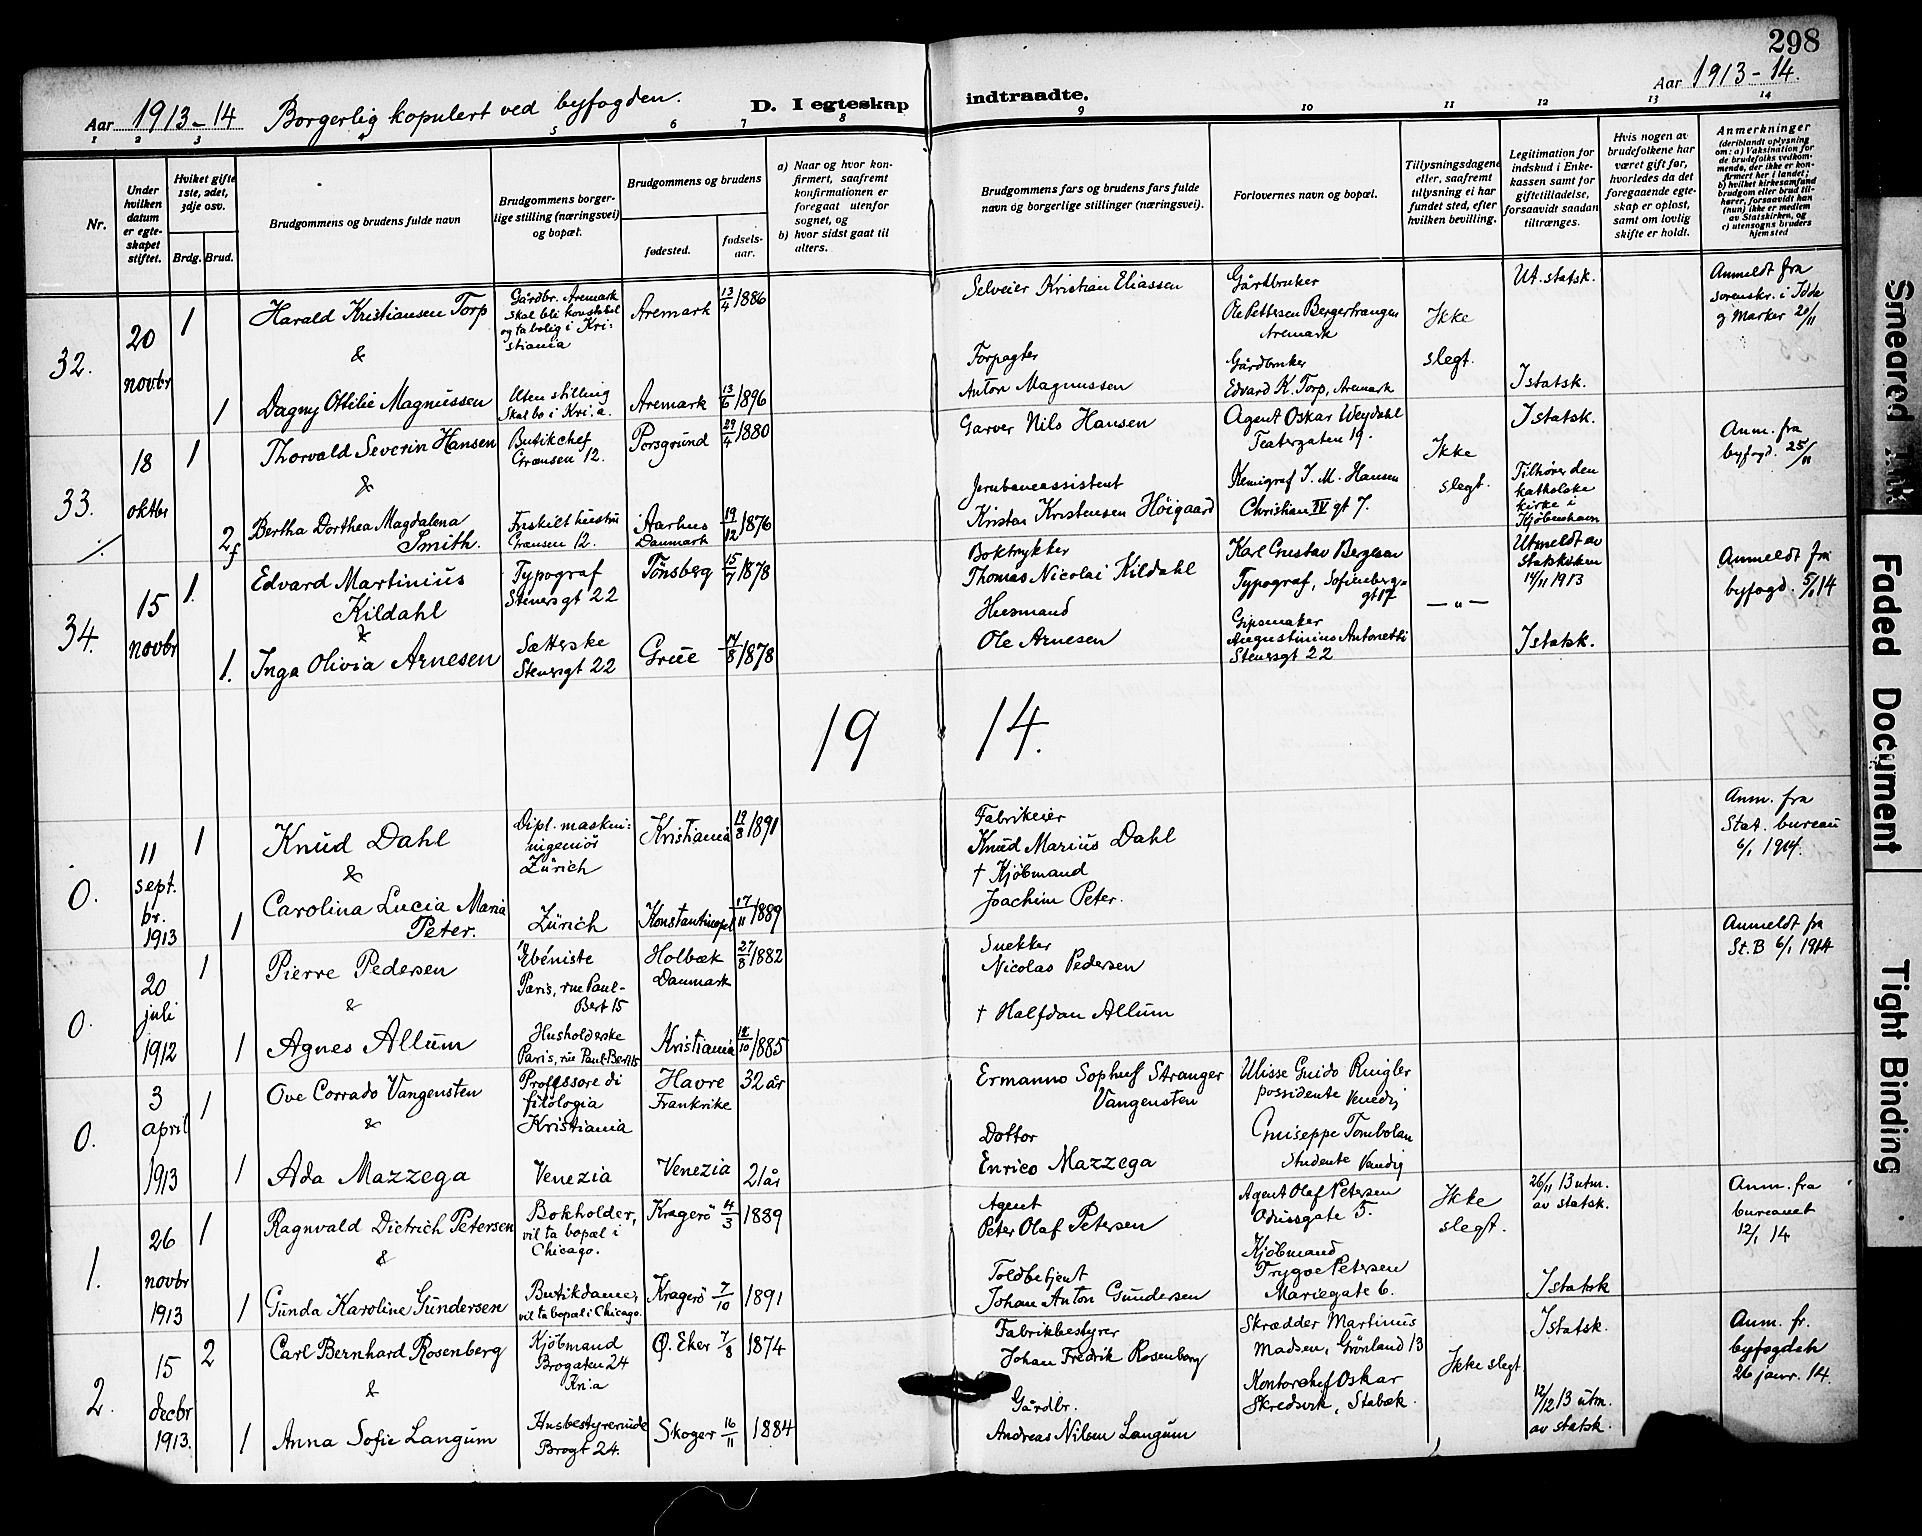 298
Aar 1913-14 Borgerlig kopulert ved byfogden. D. I egteskap indtraadte. Aar 1913-14.
1 2 3 4 5 6 7 8 9 10 11 12 13 14
Nr.
Under hvilken datum er egteskapet stiftet.
Hviket gifte 1ste, 2det, 3dje osv.
Brdg. Brud.
Brudgommens og brudens fulde navn
Brudgommens borgerlige stilling (næringsvei) og bopæl.
Brudgommens og brudens
fødested.
fødselsaar.
a) Naar og hvor konfirmert, saafremt konfirmationen er foregaat utenfor sognet, og
b) hvor sidst gaat til alters.
Brudgommens fars og brudens fars fulde navn og borgerlige stillinger (næringsvei).
Forlovernes navn og bopæl.
Tillysningsdagene eller, saafremt tillysning ei har fundet sted, efter hvilken bevilling.
Legitimation for indskud i Enkekassen samt for giftetilladelse, forsaavidt saadan tiltrænges.
Hvis nogen av brudefolkene har været gift før, hvorledes da det foregaaende egteskap er opløst, samt om lovlig skifte er holdt.
Anmerkninger
(deriblandt oplysning om: a) Vaksination for de brudefolks vedkommende, der ikke er konfirmert her i landet; b) hvilket kirkesamfund brudgom eller brud tilhører, forsaavidt han (hun) ikke er medlem av Statskirken, og c) utensogns bruders hjemsted
32.
20 novbr
1
Harald Kristiansen Torp
&
1
Dagny Ottilie Magnussen
Gårdbr. Aremark
skal bli konstabel
og ta bolig i Kristiania
Uten stilling
Skal bo i Kri.a.
Aremark 13/4 1886
Aremark 13/6 1896
Selveier Kristian Eliassen
Forpagter
Anton Magnussen
Gårdbruker
Ole Pettersen Bergertrangen
Aremark
Gårdbruker
Edvard K. Torp, Aremark
Ikke slegt.
Ut. statsk.
I statsk.
Anmeldt fra
sorenskr. i Idde
og Marker 20/11
33.
18 oktbr
1
Thorvald Severin Hansen
&
2 f
Bertha Dorthea Magdalena
Smith.
Butikchef
Grænsen 12.
Frskilt hustru
Grænsen 12.
Porsgrund 29/4 1880
Aarhus
Danmark 19/12 1876
Garver Nils Hansen
Jernbaneassistent
Kristen Kristensen Höigaard
Agent Oskar Weydahl
Teatergaten 19.
Kemigraf I. M. Hansen
Christian IV gt 7.
Ikke slegt.
I statsk.
Tilhører den
katholske
kirke i
Kjöbenhavn
Anm. fra
byfogd. 25/11
34.
15 novbr
1.
Edvard Martinius
Kildahl
&
1.
Inga Olivia Arnesen
Typograf
Stenersgt 22
Sætterske
Stenersgt 22
Tönsberg 15/7 1878
Grue 14/8 1878
Boktrykker
Thomas Nicolai Kildahl
Husmand
Ole Arnesen
Karl Gustav Bergban
Typograf, Sofienberggt 17
Gipsmaker
Augustinius Antonetti
Stenersgt 22
— " —
Utmeldt av
Statskirken
14/11 1913
I statsk.
Anmeldt fra
byfogd. 5/1 14
19 14.
0.
11 sept.br. 1913
1
Knud Dahl
&
1
Carolina Lucia Maria
Peter.
Dipl. maskiningeniör
Zürich
Zürich
Kristiania 19/8 1891
Konstantinopel 17/11 1889
Fabrikeier
Knud Marius Dahl
† Kjöbmand
Joachim Peter.
Anm. fra
Stat. bureau
6/1 1914.
0.
20 juli 1912
1
Pierre Pedersen
&
1
Agnes Allum
Ebéniste
Paris, rue Paul-Bert 15
Husholderske
Paris, rue Paul-Bert 15
Holbæk
Danmark 27/8 1882
Kristiania 12/10 1885
Snekker
Nicolas Pedersen
† Halfdan Allum
Anmeldt fra
St. B 6/1 1914
0.
3 april 1913
1
Ove Corrado Vangensten
&
1
Ada Mazzega
Professore di
filologia
Kristiania
Venezia
Havre
Frankrike 32 år
Venezia 21 år
Ermanno Sophus Stranger
Vangensten
Dottor
Enrico Mazzega
Ulisse Guido Ruigler
possidente Venedig
Guiseppe Tombolan
studente Venedig
1.
26 novbr 1913
1
Ragnvald Dietrich Petersen
&
1
Gunda Karoline Gundersen
Bokholder,
vil ta bopæl i
Chicago.
Butikdame,
vil ta bopæl i Chicago.
Kragerö 4/3 1889
Kragerö 7/10 1891
Agent
Peter Olaf Petersen
Toldbetjent
Johan Anton Gundersen
Agent Olaf Petersen
Odinsgate 5.
Kjöbmand
Trygve Petersen
Mariegate 6.
Ikke slegt.
26/11 13 utm.
av statsk.
I statsk
Anm. fra
bureauet
12/1 14
2.
15 decbr 1913.
2
Carl Bernhard Rosenberg
&
1
Anna Sofie Langum
Kjöbmand
Brogaten 24
Kr.a
Husbestyrerinde
Brogt 24.
Ø. Eker 7/8 1874
Skoger 16/11 1884
Fabrikbestyrer
Johan Fredrik Rosenberg
Gårdbr.
Andreas Nilsen Langum
Skrædder Martinus
Madsen, Grønland 13
Kontorchef Oskar
Skredsvik, Stabæk.
Ikke slegt
I statsk.
12/12 13 utm.
av statsk.
Anm. fr.
byfogden
26 janr. 14.
Smeared Ink
Faded Document
Tight Binding